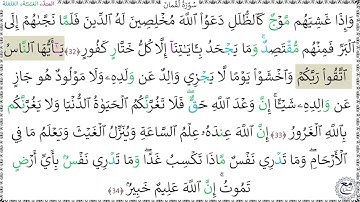 سُورَةُ لُقْمَان
المدّ، الغنّة، القلقلة
وَإِذَا غَشِيَهُم مَّوْجٌ كَٱلظُّلَلِ دَعَوُا۟ ٱللَّهَ مُخْلِصِينَ لَهُ ٱلدِّينَ فَلَمَّا نَجَّىٰهُمْ إِلَى
ٱلْبَرِّ فَمِنْهُم مُّقْتَصِدٌ ۚ وَمَا يَجْحَدُ بِـَٔايَـٰتِنَآ إِلَّا كُلُّ خَتَّارٍ كَفُورٍ ﴿32﴾ يَـٰٓأَيُّهَا ٱلنَّاسُ
ٱتَّقُوا۟ رَبَّكُمْ وَٱخْشَوْا۟ يَوْمًا لَّا يَجْزِى وَالِدٌ عَن وَلَدِهِۦ وَلَا مَوْلُودٌ هُوَ جَازٍ
عَن وَالِدِهِۦ شَيْـًٔا ۚ إِنَّ وَعْدَ ٱللَّهِ حَقٌّ ۖ فَلَا تَغُرَّنَّكُمُ ٱلْحَيَوٰةُ ٱلدُّنْيَا وَلَا يَغُرَّنَّكُم
بِٱللَّهِ ٱلْغَرُورُ ﴿33﴾ إِنَّ ٱللَّهَ عِندَهُۥ عِلْمُ ٱلسَّاعَةِ وَيُنَزِّلُ ٱلْغَيْثَ وَيَعْلَمُ مَا فِى
ٱلْأَرْحَامِ ۖ وَمَا تَدْرِى نَفْسٌ مَّاذَا تَكْسِبُ غَدًا ۖ وَمَا تَدْرِى نَفْسٌۢ بِأَىِّ أَرْضٍ
تَمُوتُ ۚ إِنَّ ٱللَّهَ عَلِيمٌ خَبِيرٌۢ ﴿34﴾